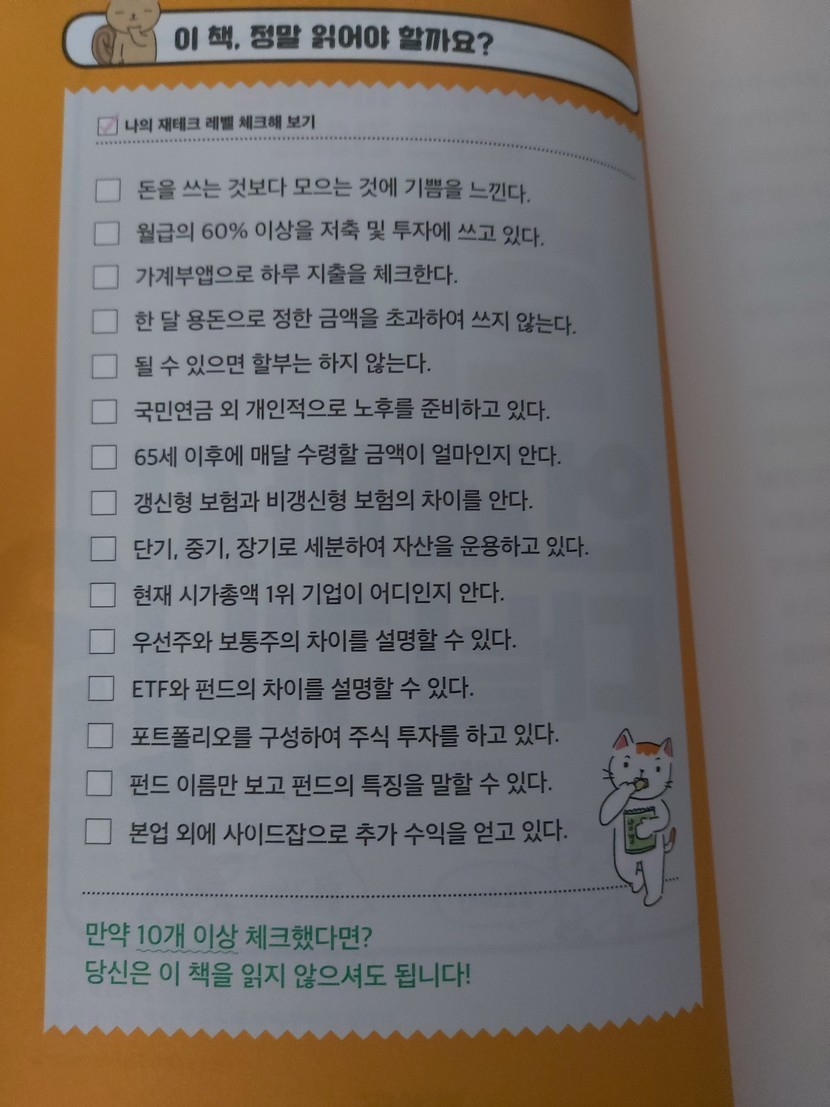 이 책, 정말 읽어야 할까요?
나의 재테크 레벨 체크해 보기
돈을 쓰는 것보다 모으는 것에 기쁨을 느낀다.
월급의 60% 이상을 저축 및 투자에 쓰고 있다.
가계부앱으로 하루 지출을 체크한다.
한 달 용돈으로 정한 금액을 초과하여 쓰지 않는다.
될 수 있으면 할부는 하지 않는다.
국민연금 외 개인적으로 노후를 준비하고 있다.
65세 이후에 매달 수령할 금액이 얼마인지 안다.
갱신형 보험과 비갱신형 보험의 차이를 안다.
단기, 중기, 장기로 세분하여 자산을 운용하고 있다.
현재 시가총액 1위 기업이 어디인지 안다.
우선주와 보통주의 차이를 설명할 수 있다.
ETF와 펀드의 차이를 설명할 수 있다.
포트폴리오를 구성하여 주식 투자를 하고 있다.
펀드 이름만 보고 펀드의 특징을 말할 수 있다.
본업 외에 사이드잡으로 추가 수익을 얻고 있다.
만약 10개 이상 체크했다면?
당신은 이 책을 읽지 않으셔도 됩니다!